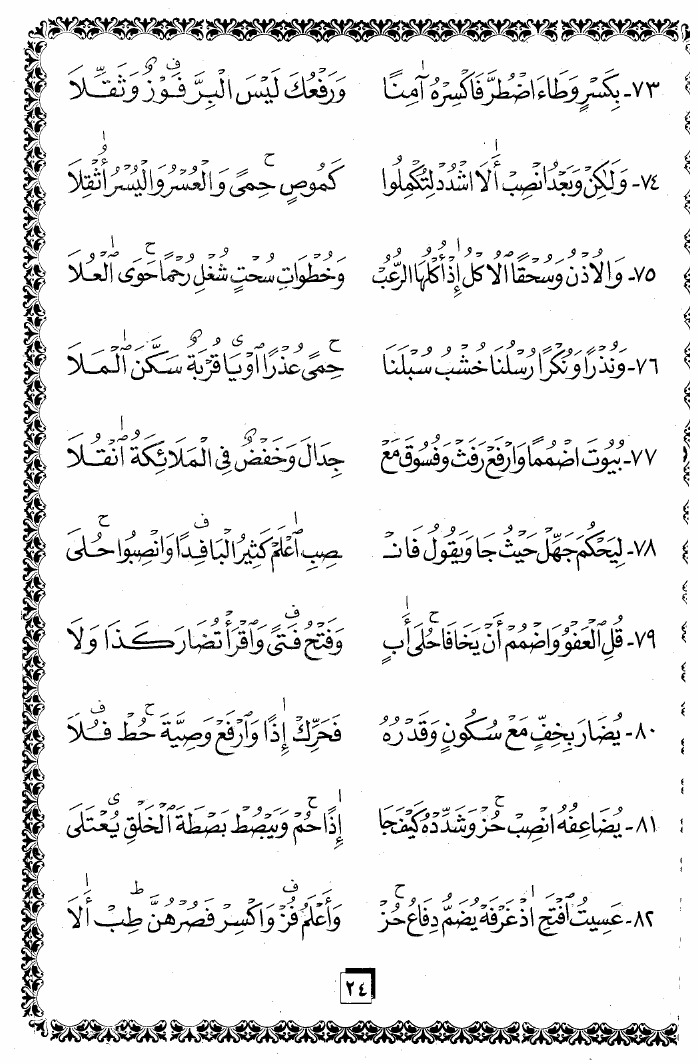 ٧٣- بِكَسْرٍ وَطَاءَ اضْطُرَّ فَاكْسِرْهُ آمِنًا وَرَفْعُكَ لَيْسَ الْبِرَّ فَوْزٌ وَثَقِّلَا
٧٤- وَلَكِنْ وَبَعْدُ انْصِبْ أَلَا اشْدُدْ لِتُكْمِلُوا كَمُوصٍ حِمًى وَالْعُسْرُ وَالْيُسْرُ أُثْقِلَا
٧٥- وَالْاُذْنُ وَسُحْقًا الْاُكْلُ إِذْ أُكْلُهَا الرُّعُبْ وَخُطْوَاتِ سُحْتٍ شُغْلِ رُحْمًا حَوَى الْعُلَا
٧٦- وَنُذْرًا وَنُكْرًا رُسْلُنَا خُشْبُ سُبْلَنَا حِمًى عُذْرًا اَوْ يَا قُرْبَةٌ سَكَّنَ الْمَلَا
٧٧- بُيُوتَ اضْمُمًا وَارْفَعْ رَفَثْ وَفُسُوقَ مَعْ جِدَالَ وَخَفْضٌ فِي الْمَلَائِكَةُ انْقُلَا
٧٨- لِيَحْكُمَ جَهِّلْ حَيْثُ جَا وَيَقُولُ فَانْـ ـصِبِ اعْلَمْ كَثِيرُ الْبَا فِدًا وَانْصِبُوا حُلَى
٧٩- قُلِ الْعَفْوَ وَاضْمُمْ أَنْ يَخَافَا حُلَى أَبٍ وَفَتْحُ فَتًى وَاقْرَأْ تُضَارَ كَذَا وَلَا
٨٠- يُضَارَ بِخِفٍّ مَعْ سُكُونٍ وَقَدْرُهُ فَحَرِّكْ إِذًا وَارْفَعْ وَصِيَّةَ حُطْ فُلَا
٨١- يُضَاعِفُهُ انْصِبْ حُزْ وَشَدِّدْهُ كَيْفَ جَا إِذًا حُمْ وَيَبْصُطْ بَصْطَةَ الْخَلْقِ يُعْتَلَى
٨٢- عَسِيتُ افْتَحِ اذْ غَرْفَهْ يُضَمُّ دِفَاعُ حُزْ وَأَعْلَمُ فُزْ وَاكْسِرْ فَصُرْهُنَّ طِبْ أَلَا
٢٤